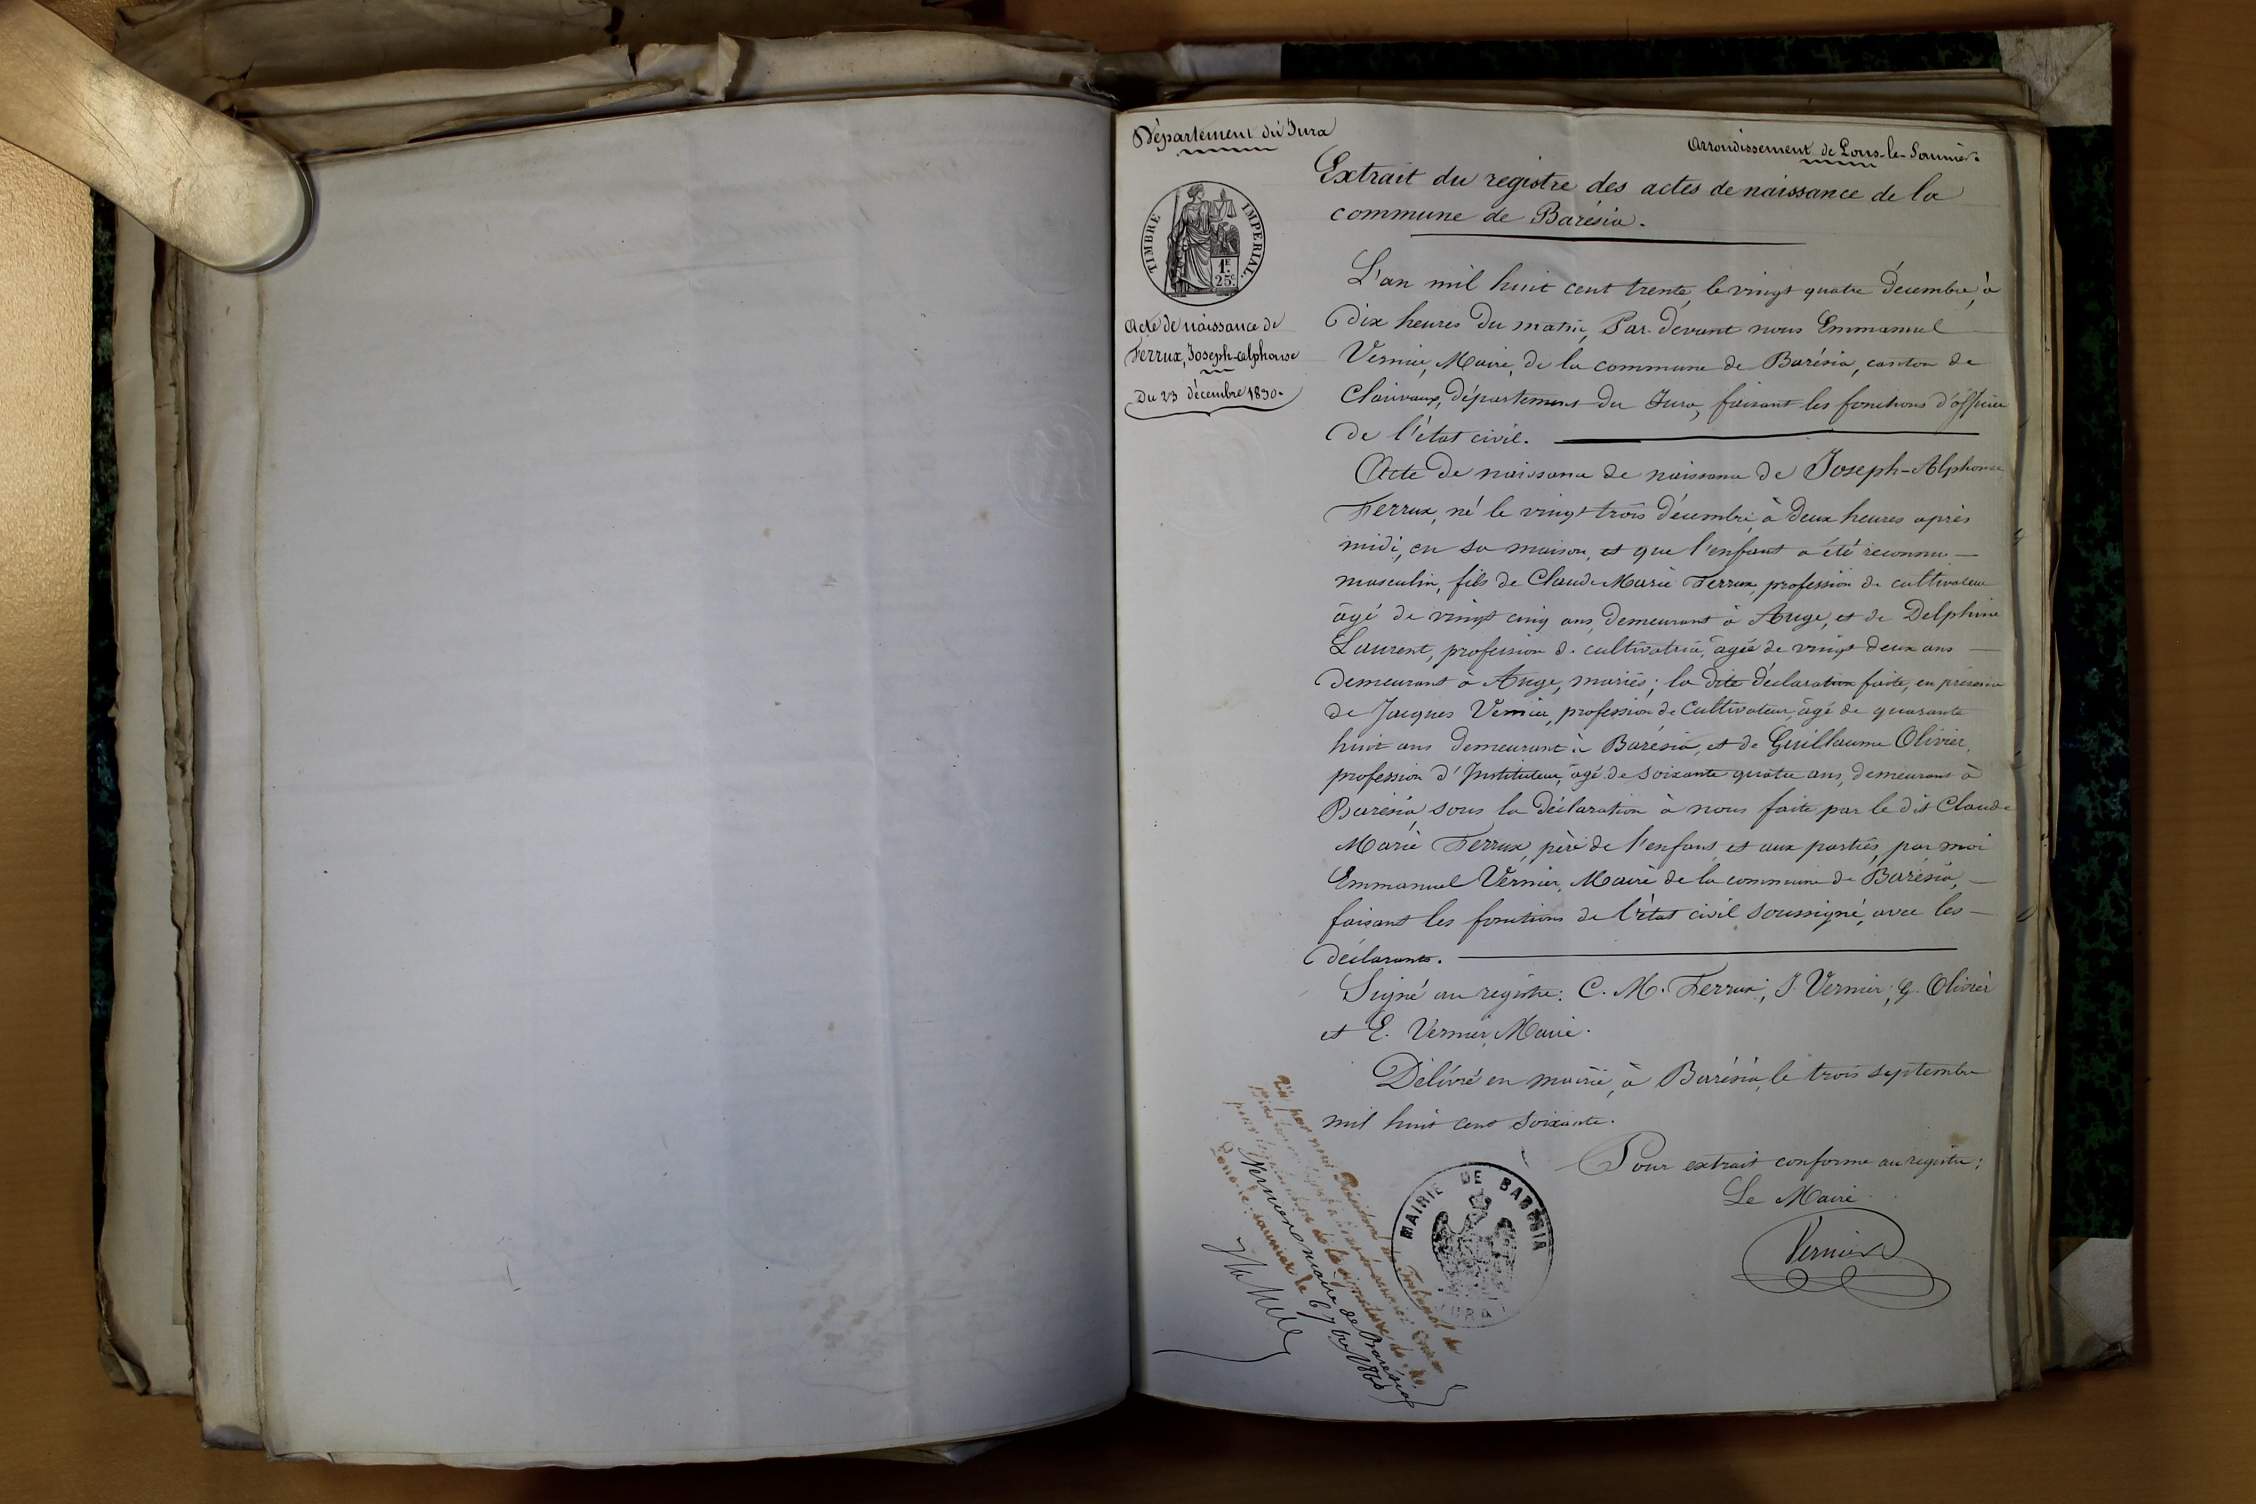 Département du Jura
Arrondissement de Lons-le-Saunier.
Extrait du registre des actes de naissance de la
commune de Barésia.
TIMBRE IMPERIAL.
1F.
25c.
Acte de naissance de
Ferrux, Joseph-Alphonse
Du 23 décembre 1830.
L'an mil huit cent trente, le vingt quatre décembre, à
dix heures du matin, Par-devant nous Emmanuel
Vernier, Maire, de la commune de Barésia, canton de
Clairvaux, département du Jura, faisant les fonctions d'officier
de l'état civil.
Acte de naissance de naissance de Joseph-Alphonse
Ferrux, né le vingt trois décembre, à deux heures après
midi, en sa maison, et que l'enfant a été reconnu
masculin, fils de Claude Marie Ferrux, profession de cultivateur
âgé de vingt cinq ans, demeurant à Auge, et de Delphine
Laurent, profession de cultivatrice, âgée de vingt deux ans
demeurant à Auge, mariés; la dite déclaration faite, en présence
de Jacques Vernier, profession de Cultivateur, âgé de quarante
huit ans demeurant à Barésia, et de Guillaume Olivier,
profession d'Instituteur, âgé de soixante quatre ans, demeurant à
Barésia, sous la déclaration à nous faite par le dit Claude
Marie Ferrux, père de l'enfant, et aux parties, par moi
Emmanuel Vernier, Maire de la commune de Barésia,
faisant les fonctions de l'état civil soussigné, avec les
déclarants.
Signé au registre: C. M. Ferrux; J. Vernier; G. Olivier
et E. Vernier, Maire.
Délivré en mairie, à Barésia, le trois septembre
mil huit cent soixante.
Pour extrait conforme au registre:
Le Maire
Vernier
MAIRIE DE BARÉSIA
JURA
Vu par nous Président du Tribunal de
pour légalisation de la signature de M.
Vernier maire de Barésia
Lons-le-Saunier le 6 7bre 1860